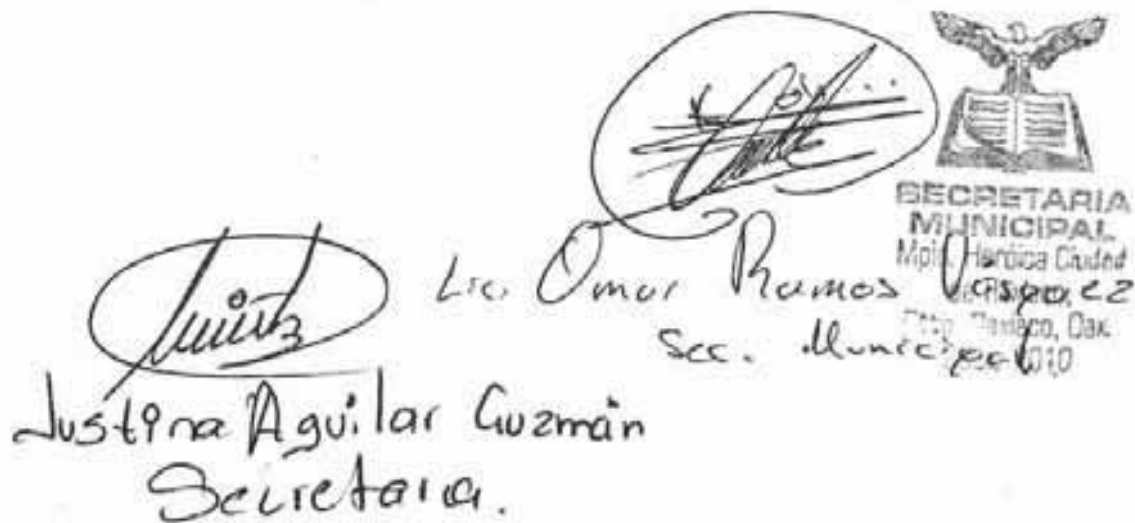 SECRETARIA
MUNICIPAL
Mpio. Heróica Ciudad
Dax.
Lic. Omar Ramos Vasquez
Sec. Municipal
Justina Aguilar Guzmán
Secretaria.